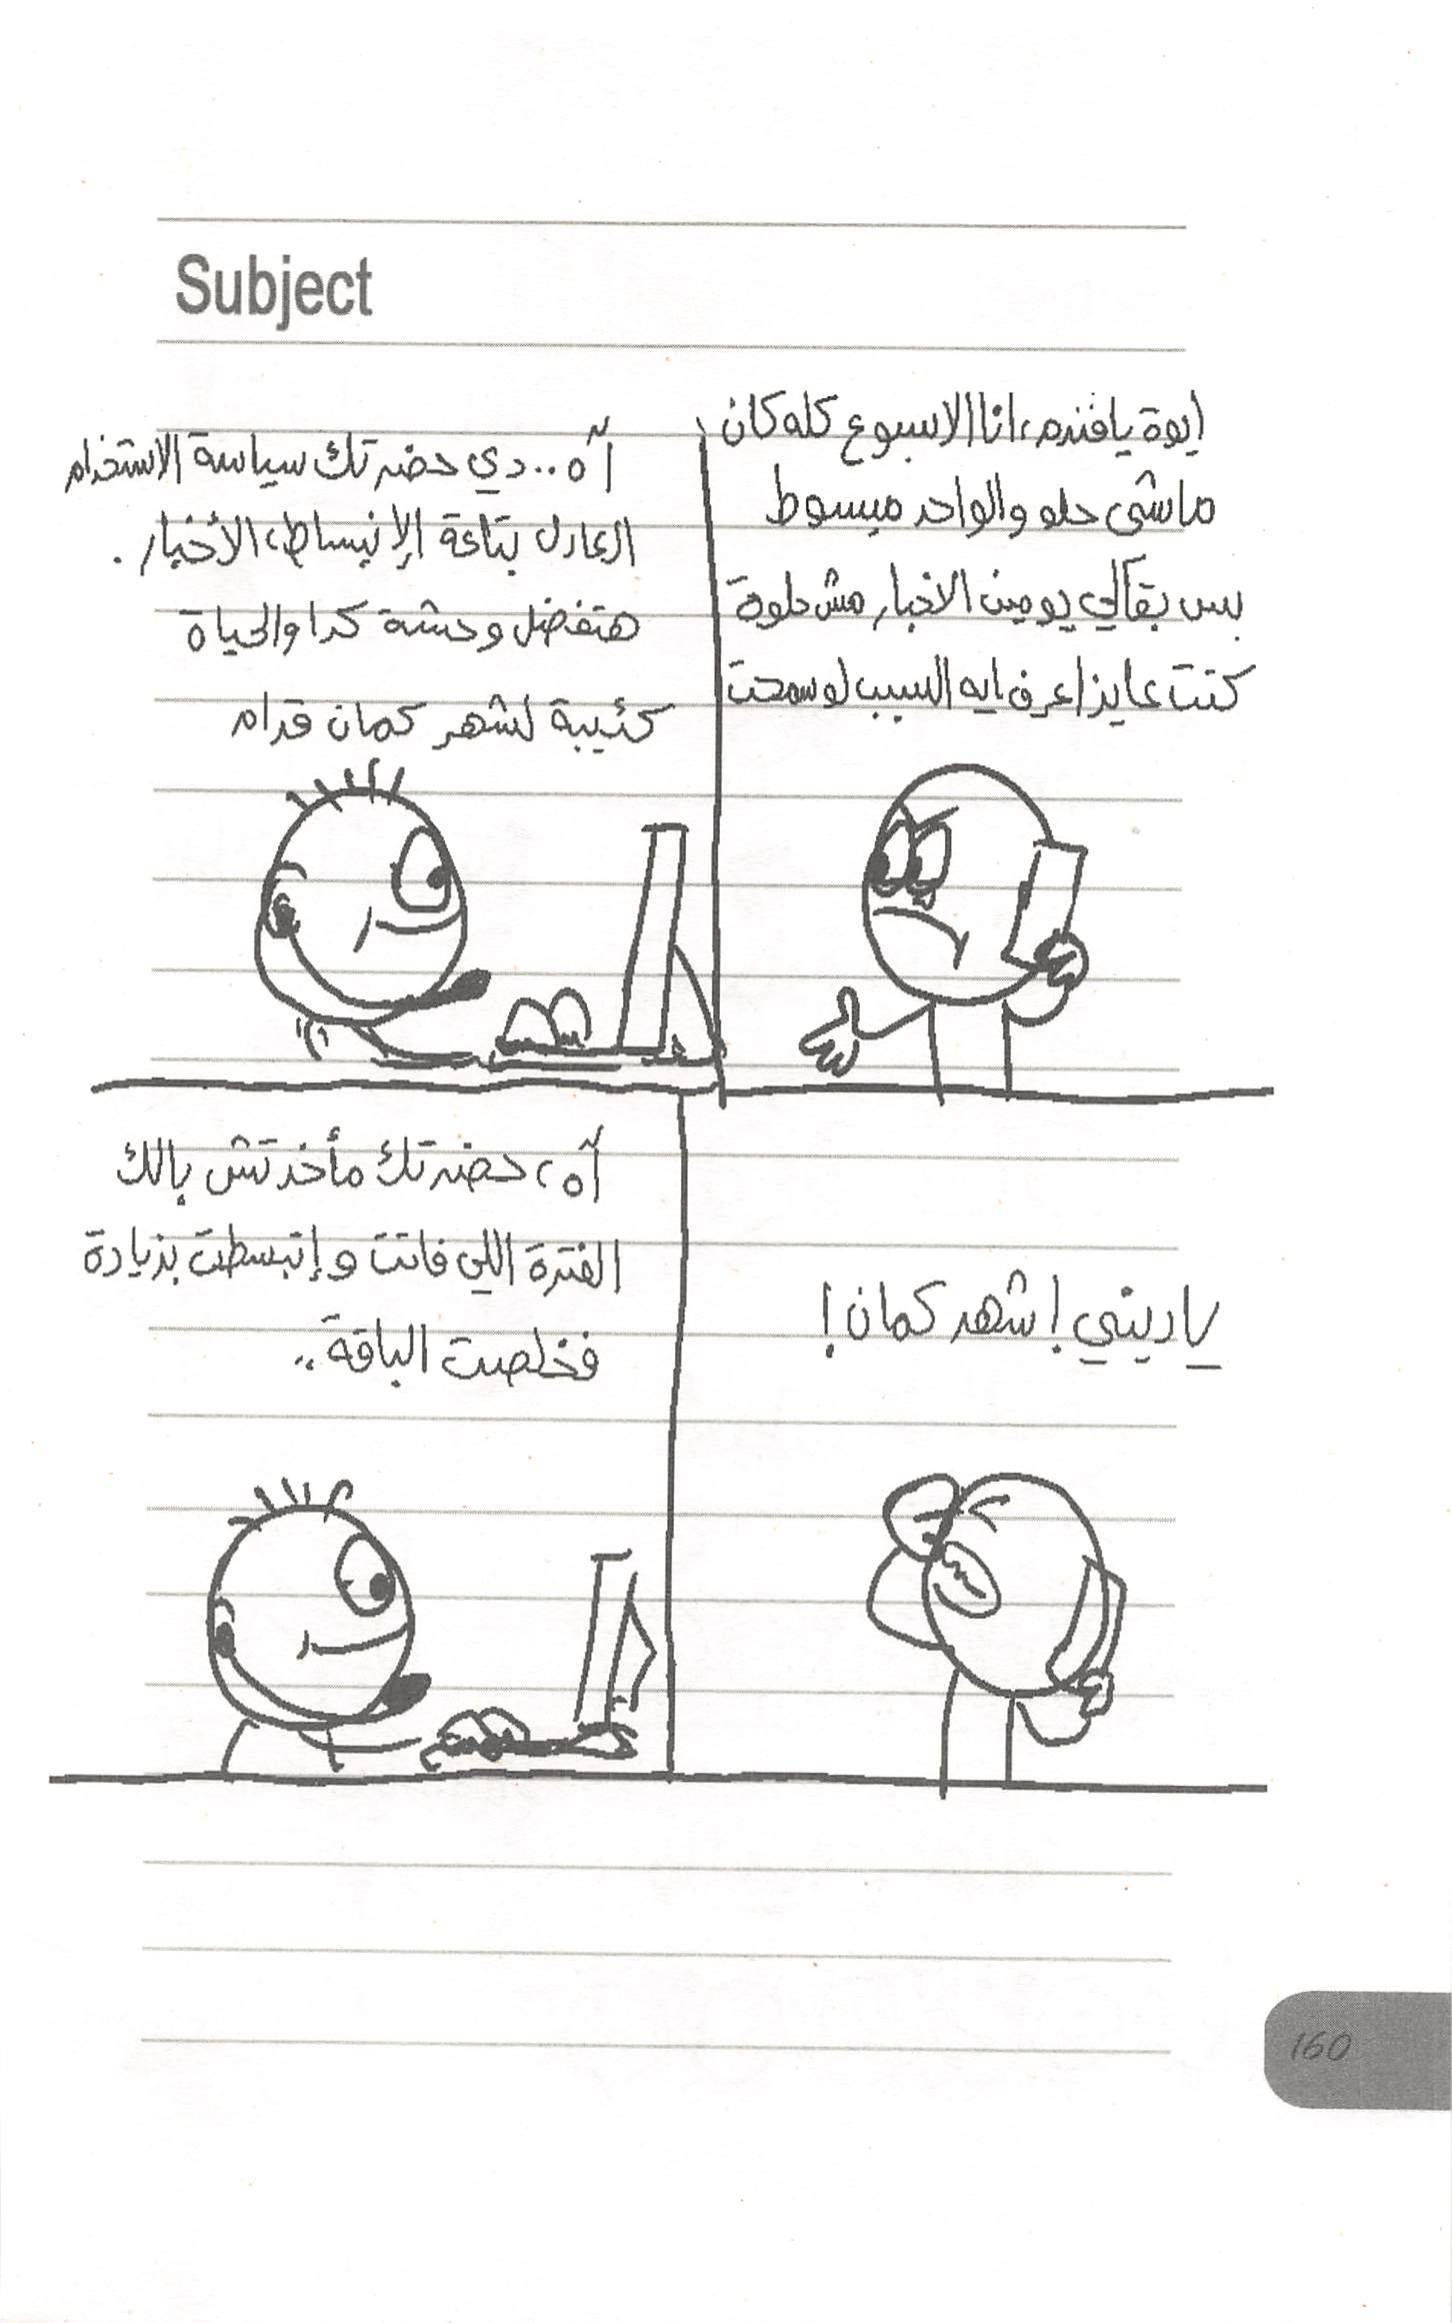 Subject
ايوة يافندم، انا الاسبوع كله كان
ماشي حلو والواحد مبسوط
بس بقالي يومين الاخبار مش حلوة
كنت عايز اعرف ايه السبب لو سمحت
آه.. دي حضرتك سياسة الاستخدام
العادل بتاعة الإنبساط، الأخبار.
هتفضل وحشة كدا والحياة
كئيبة لشهر كمان قدام
ياديني! شهر كمان!
آه، حضرتك مأخدتش بالك
الفترة اللي فاتت وإتبسطت بزيادة
فخلصت الباقة..
160